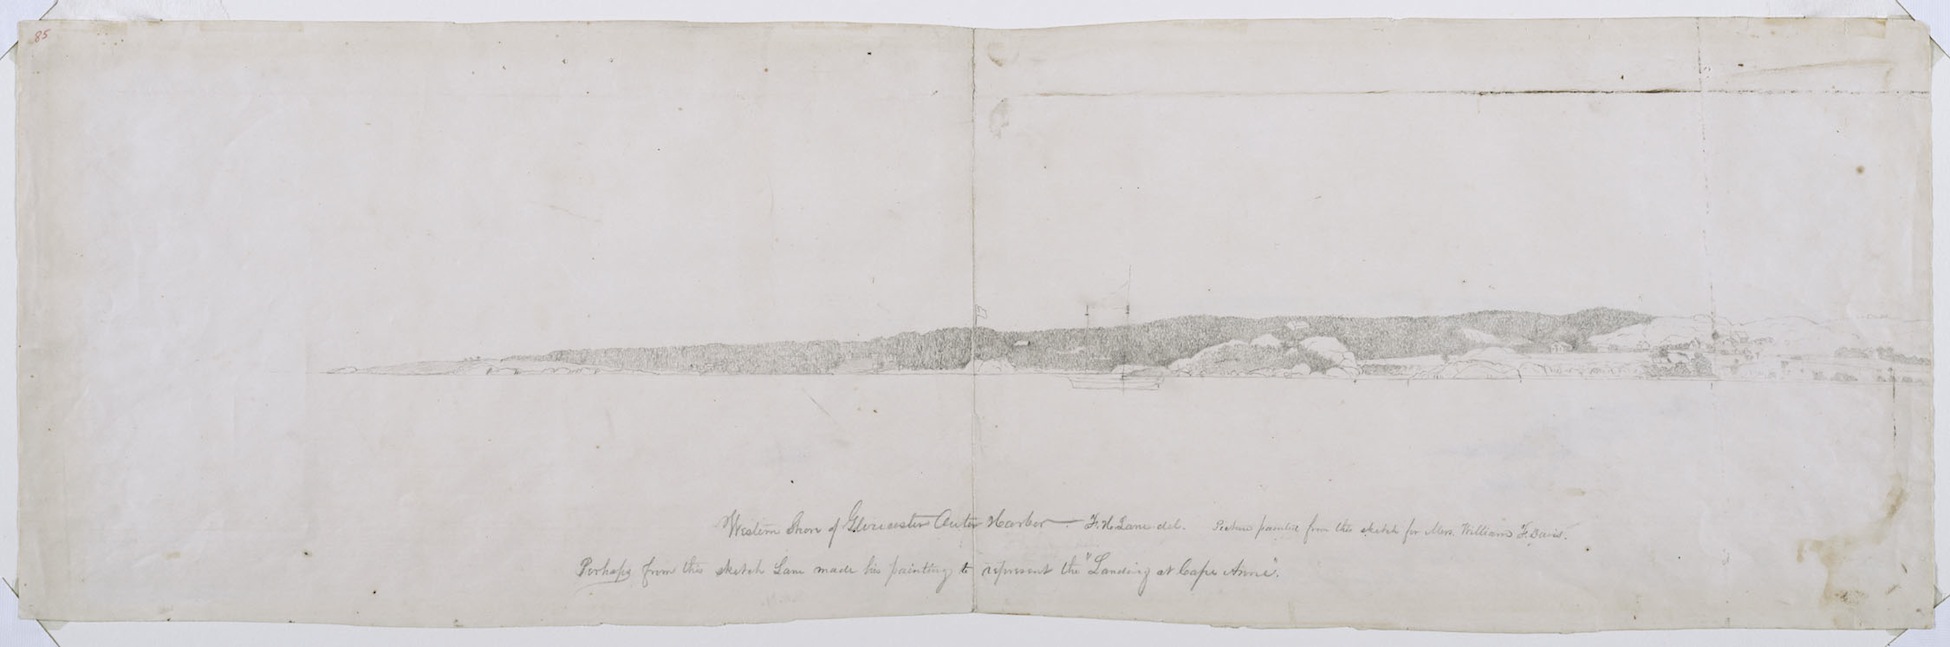 85
Western Shore of Gloucester Outer Harbor — F. H. Lane del. Picture painted from this sketch for Mrs. William F. Davis.
Perhaps from this sketch Lane made his painting to represent the "Landing at Cape Anne".